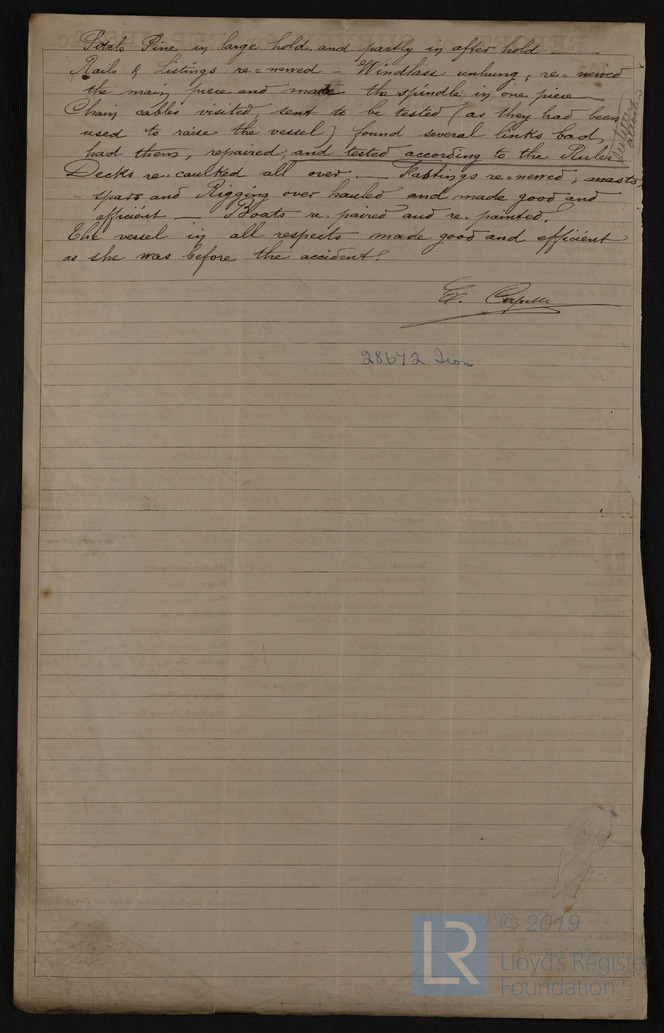 Pitch Pine in large hold and partly in after hold —
Rails & Listings re=newed – Windlass unhung, re=newed
the main piece and made the spindle in one piece
Chain cables visited, sent to be tested (as they had been
used to raise the vessel) found several links bad,
had them, repaired, and tested according to the Rules
Decks re-caulked all over. — Fastings re=newed, masts,
- spars and Rigging over hauled and made good and
efficient — Boats re-paired and re-painted.
The vessel in all respects made good and efficient
as she was before the accident
E. Capelle
28672 Iron
LR
© 2019
Lloyd's Register
Foundation